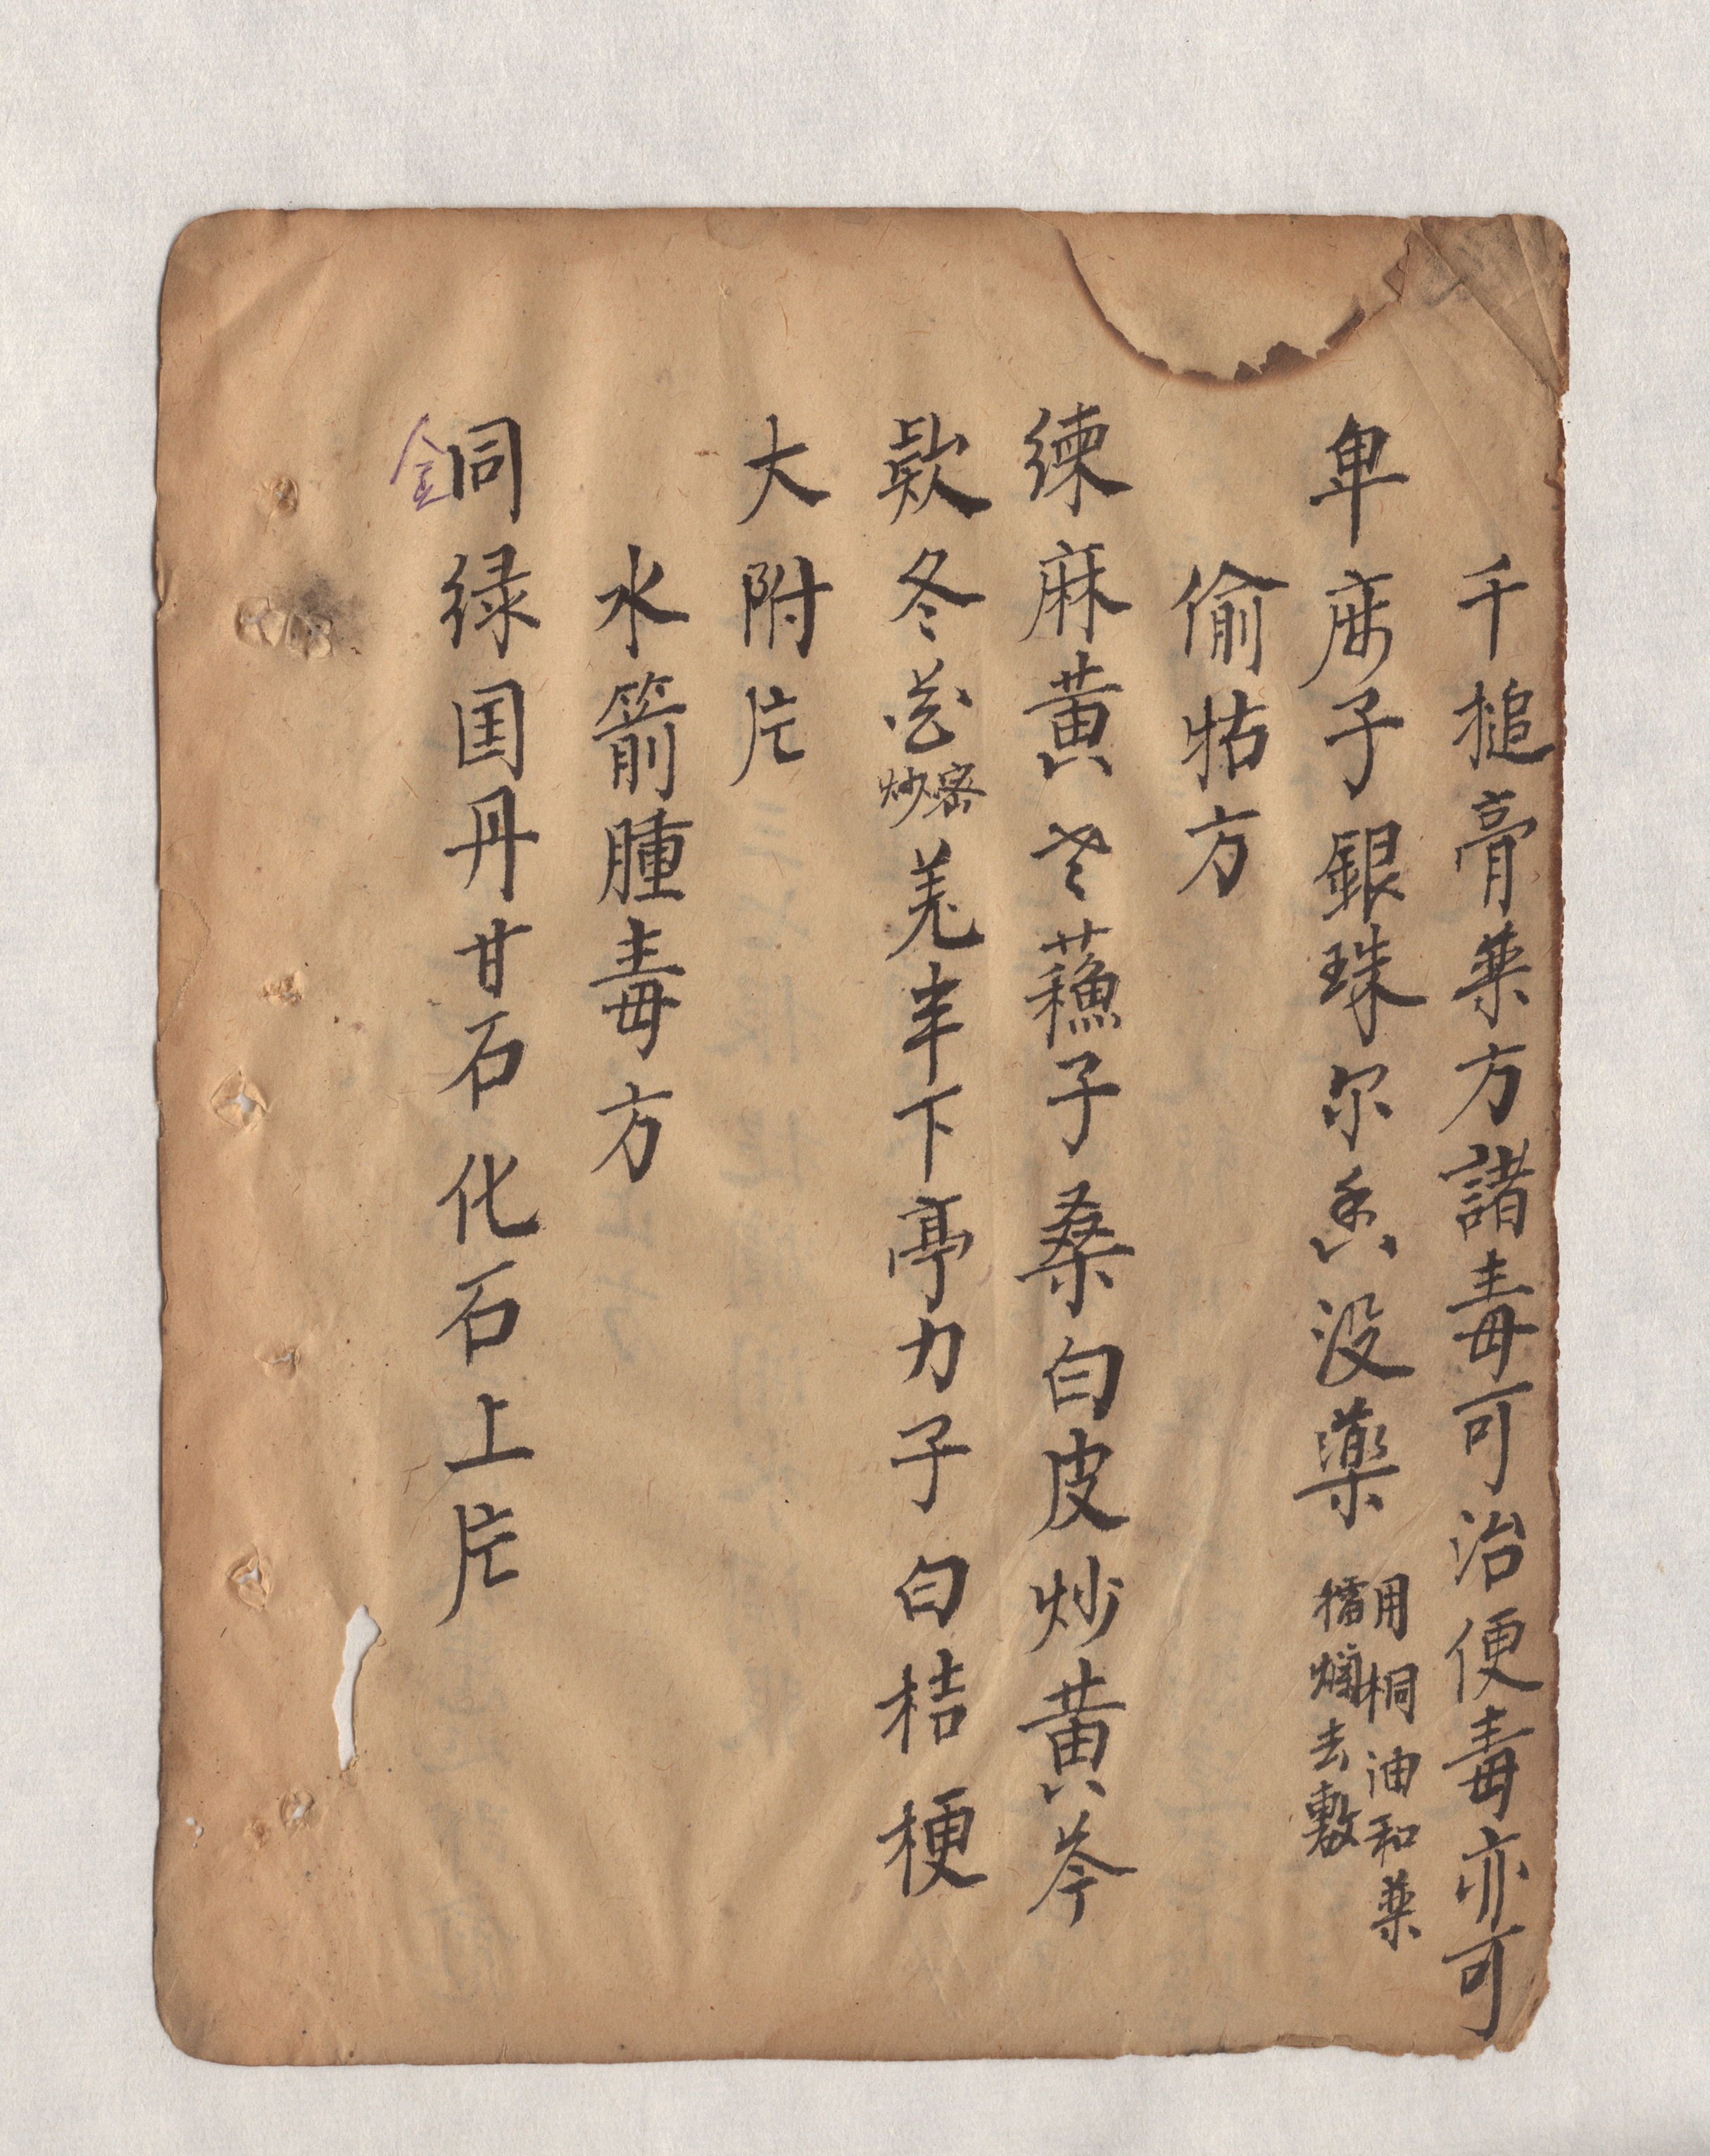 千搥膏藥方諸毒可治便毒亦可
卑麻子銀珠尔香没藥
用桐油和藥
擂爛去敷
偷牯方
練麻黄老蘓子桑白皮炒黄芩
款冬花
密
炒
羌半下亭力子白桔梗
大附片
水箭腫毒方
同绿国丹甘石化石上片
金